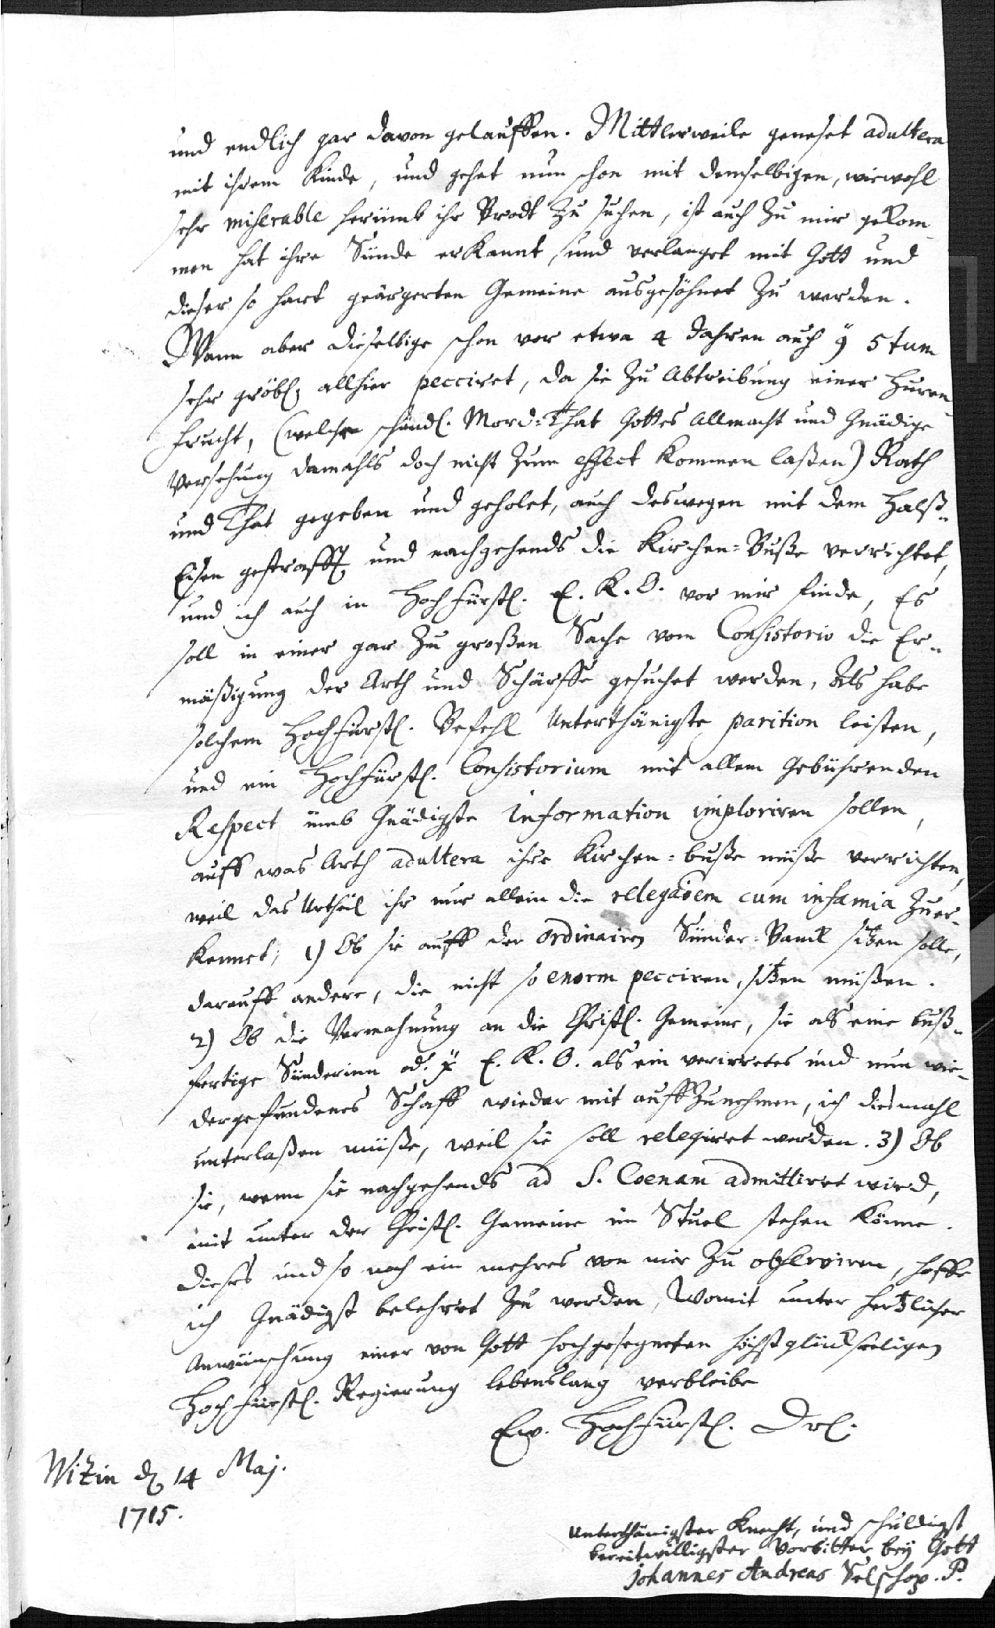 und endlich gar davon gelauffen. Mittlerweile geneset adultera
mit ihrem Kinde, und gehet nun schon mit demselbigen, wiewohl
sehr miserable herümb ihr Brodt zu suchen, ist auch zu mir gekom-
men hat ihre Sünde erkannt, und verlanget mit Gott und
dieser so hart geärgerten Gemeine ausgesöhnet zu werden.
Wann aber dieselbige schon vor etwa 4 Jahren auch 5tum
sehr gröbl. allhier pecciret, da sie zu Abtreibung einer Huren-
frucht, (welche schändl. Mord-That Gottes Allmacht und Gnädige
Versehung damahls doch nicht zum effect kommen laßen) Rath
und That gegeben und geholet, auch deswegen mit dem Halß-
Eisen gestrafft und nachgehends die Kirchen-Buße verrichtet,
und ich auch in Hochfürstl. E. K. O. vor mir finde, Es
soll in einer gar zu großen Sache vom Consistorio die Er-
mäßigung der Arth und Schärffe gesuchet werden, Als habe
solchem Hochfürstl. Befehl Unterthänigste parition leisten,
und ein Hochfürstl. Consistorium mit allem Gebührenden
Respect ümb Gnädigste Information imploriren sollen,
auff was Arth adultera ihre Kirchen-buße müße verrichten,
weil das Urtheil ihr nur allein die relegaõem cum infamia zuer-
kennet; 1) Ob sie auff der ordinairen Sünder-Banck sitzen solle,
darauff andere, die nicht so enorm pecciren, sitzen müßen.
2) Ob die Vermahnung an die Christl. Gemeine, sie als eine buß-
fertige Sünderinn od. E. K. O. als ein verirretes und nun wie-
dergefundenes Schaff wieder mit auffzunehmen, ich diesmahl
unterlaßen müße, weil sie soll relegiret werden. 3) Ob
sie, wenn sie nachgehends ad S. Coenam admittiret wird,
mit unter der Christl. Gemeine im Stuel stehen könne.
dieses und so noch ein mehres von mir zu observiren, hoffe
ich Gnädigst belehret zu werden, Womit unter hertzlicher
Anwünschung einer von Gott hochgesegneten höchstglückseeligen
Hochfürstl. Regierung lebenslang verbleibe
Ew. Hochfürstl. Drl.
Witzin d. 14 Maj.
1715.
Unterthänigster Knecht, und schuldigst
bereitwilligster Vorbitter bey Gott
Johannes Andreas Selschop. P.